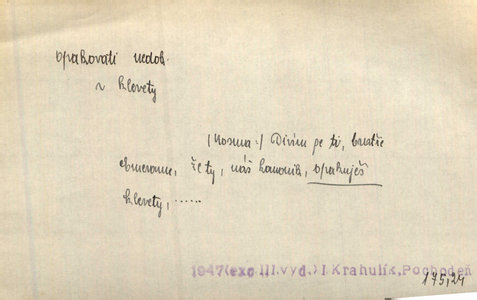 opakovati nedok.
~ klevety
(Kosma:) Divím se ti, bratře
Chmerame, že ty, náš kanovník, opakuješ
klevety, .....
1947(exc III.vyd.) I Krahulík, Pochodeň
175,24